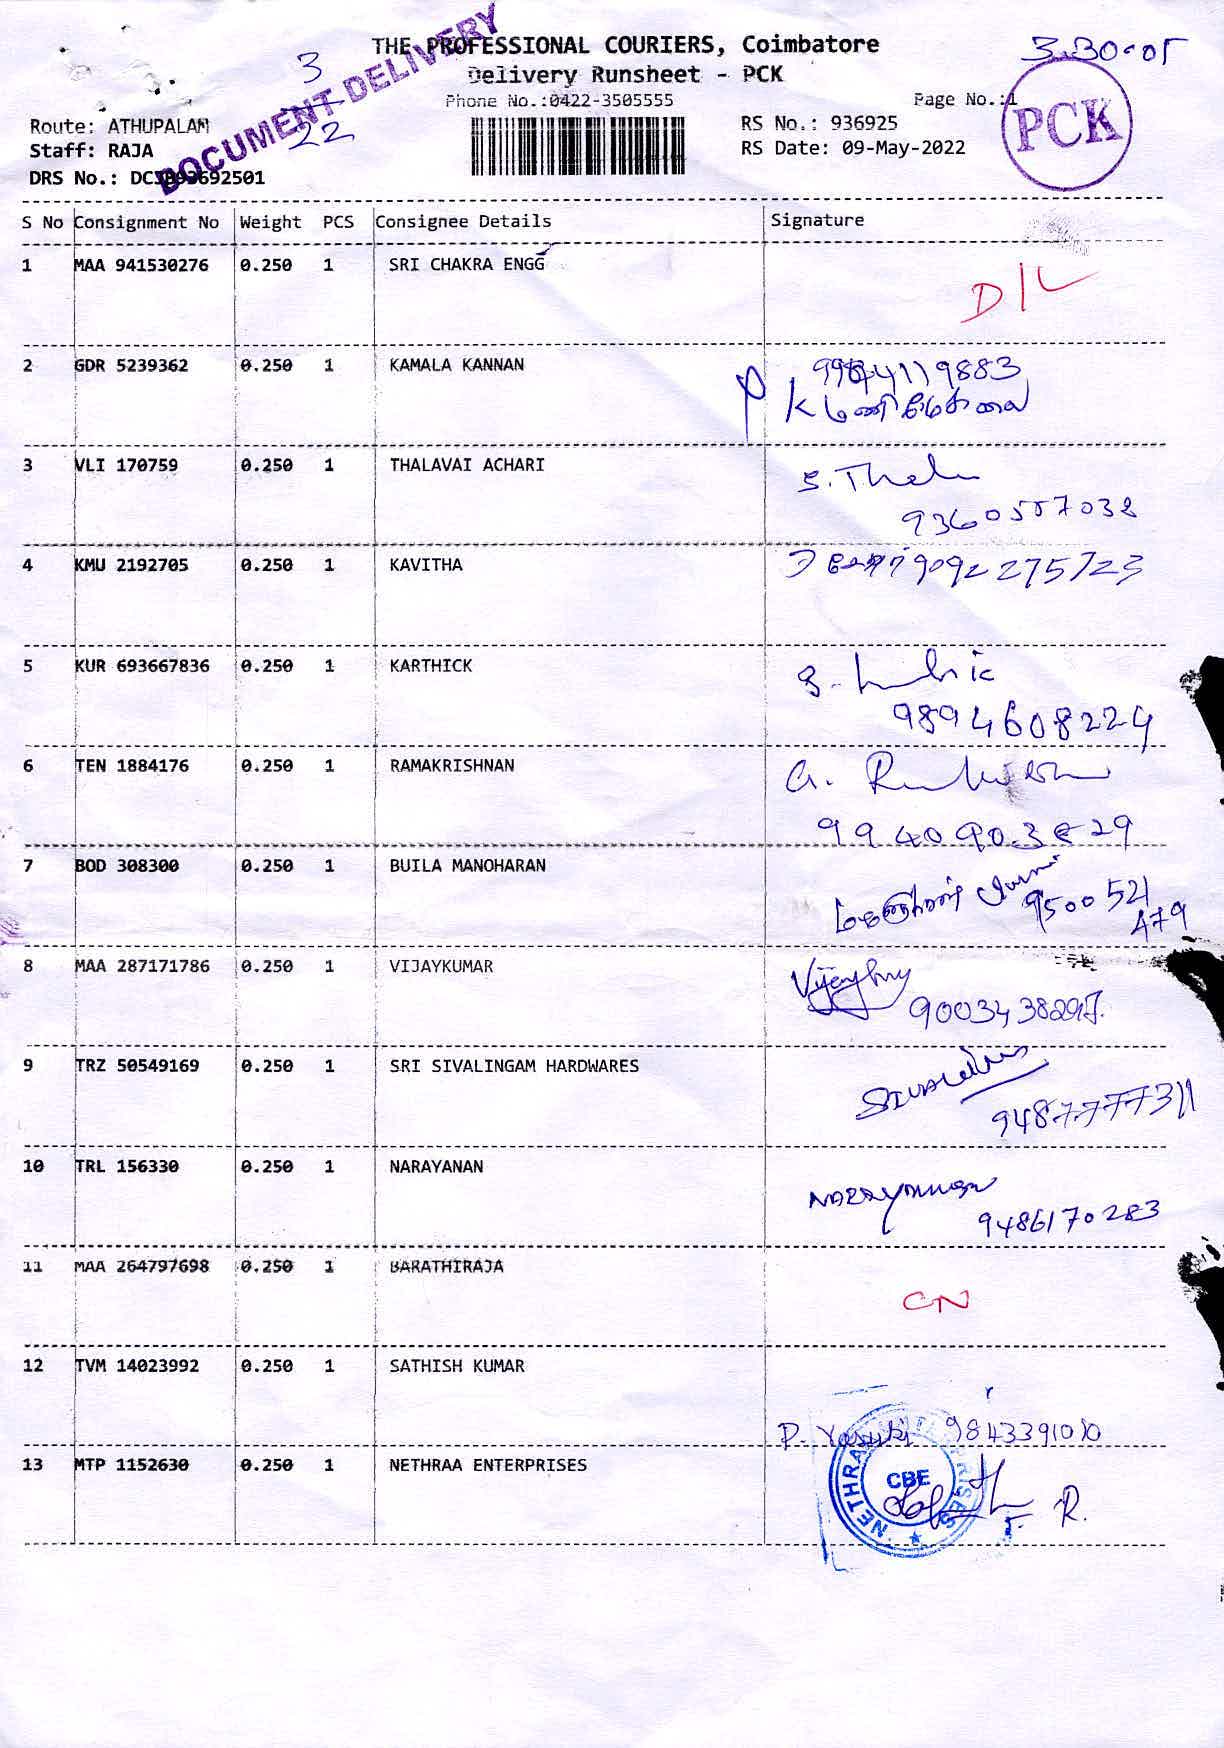 THE PROFESSIONAL COURIERS, Coimbatore
Delivery Runsheet - PCK
Phone No.:0422-3505555
Page No.:1
3.30-05
DOCUMENT DELIVERY
3
22
PCK
Route: ATHUPALAM
Staff: RAJA
DRS No.: DC3B93692501
RS No.: 936925
RS Date: 09-May-2022
S No Consignment No Weight PCS Consignee Details Signature
1 MAA 941530276 0.250 1 SRI CHAKRA ENGG
D/L
2 GDR 5239362 0.250 1 KAMALA KANNAN
K மணிமேகலை
3 VLI 170759 0.250 1 THALAVAI ACHARI
S. Thal
9360557032
4 KMU 2192705 0.250 1 KAVITHA 9092275723
5 KUR 693667836 0.250 1 KARTHICK
9894608224
6 TEN 1884176 0.250 1 RAMAKRISHNAN
G.
7 BOD 308300 0.250 1 BUILA MANOHARAN
9500521
479
8 MAA 287171786 0.250 1 VIJAYKUMAR
9 TRZ 50549169 0.250 1 SRI SIVALINGAM HARDWARES
9487777311
10 TRL 156330 0.250 1 NARAYANAN
9486170283
11 MAA 264797698 0.250 1 BARATHIRAJA
CN
12 TVM 14023992 0.250 1 SATHISH KUMAR
P. 9843391010
13 MTP 1152630 0.250 1 NETHRAA ENTERPRISES
CBE
R.